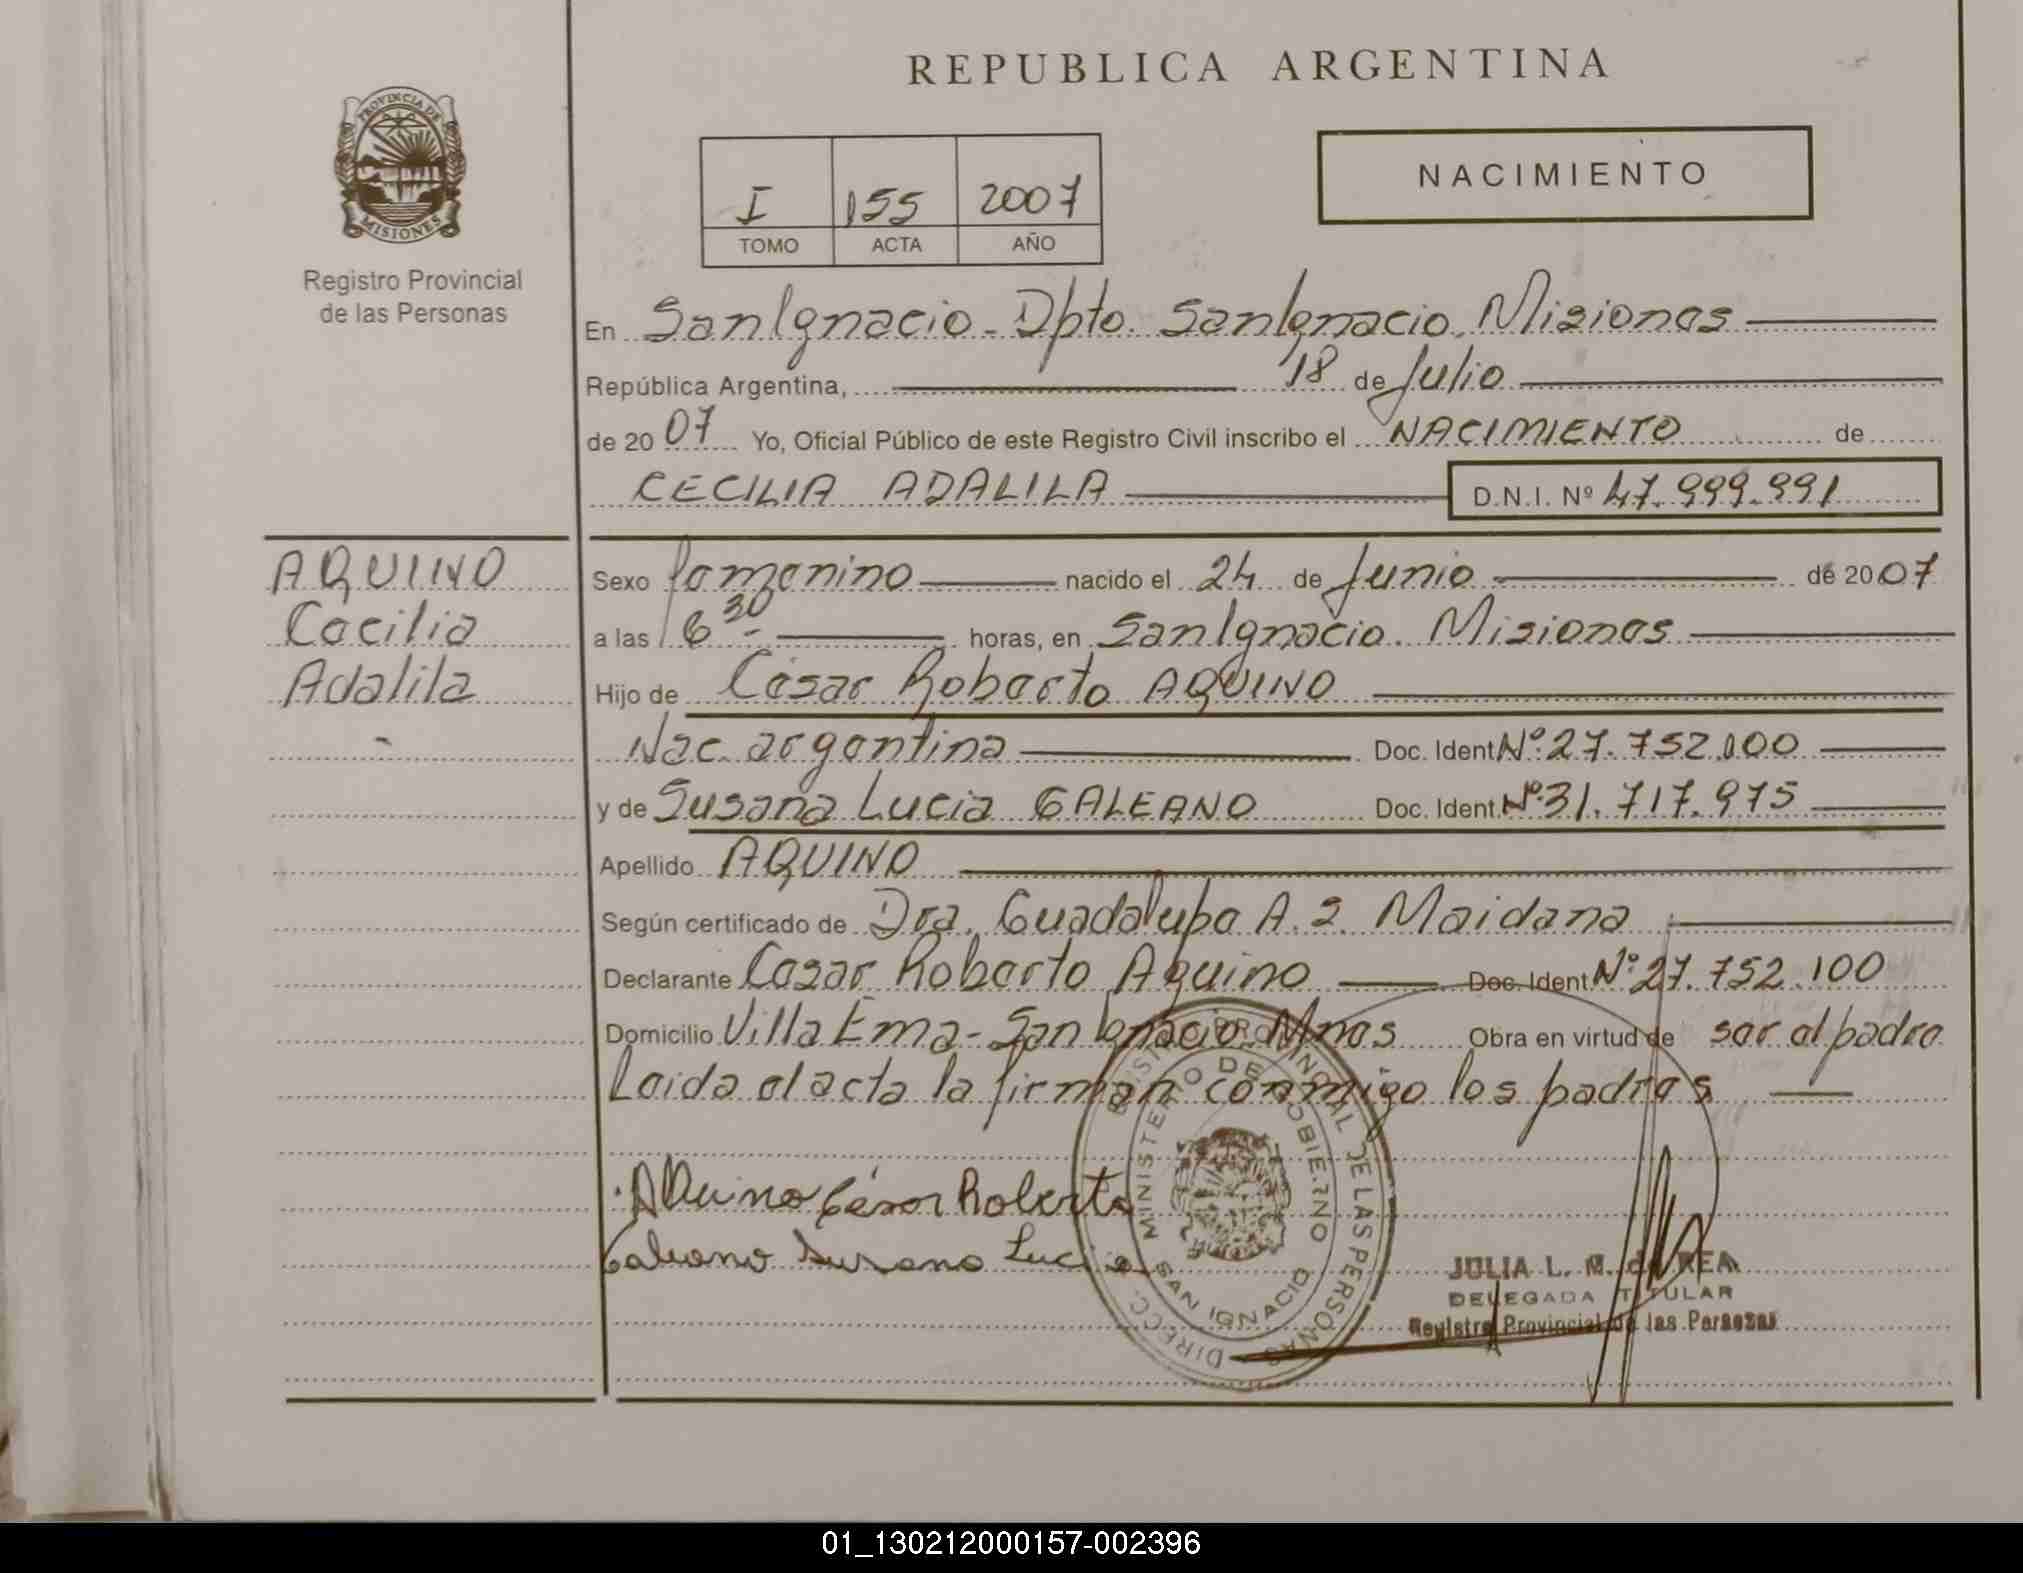 REPUBLICA ARGENTINA
PROVINCIA DE
MISIONES
Registro Provincial
de las Personas
I 155 2007
TOMO ACTA AÑO
NACIMIENTO
En San Ignacio - Dpto. San Ignacio. Misiones
República Argentina, 18 de Julio
de 20 07 Yo, Oficial Público de este Registro Civil inscribo el NACIMIENTO de
CECILIA ADALILA D.N.I. Nº 47.999.991
AQUINO
Cecilia
Adalila
Sexo femenino nacido el 24 de Junio de 20 07
a las 6 30 horas, en San Ignacio. Misiones
Hijo de César Roberto AQUINO
Nac. argentina Doc. Ident. Nº 27.752.100
y de Susana Lucia GALEANO Doc. Ident. Nº 31.717.975
Apellido AQUINO
Según certificado de Dra. Guadalupe A. S. Maidana
Declarante Cesar Roberto Aquino Doc. Ident. Nº 27.752.100
Domicilio Villa Ema - San Ignacio. Mnes Obra en virtud de ser el padre
Leida el acta la firman conmigo los padres
Aquino César Roberto
Galeano Susana Lucia
DIRECC. REGISTRO PROVINCIAL DE LAS PERSONAS
MINISTERIO DE GOBIERNO
SAN IGNACIO
JULIA L. M. de REA
DELEGADA TITULAR
Registro Provincial de las Personas
01_130212000157-002396